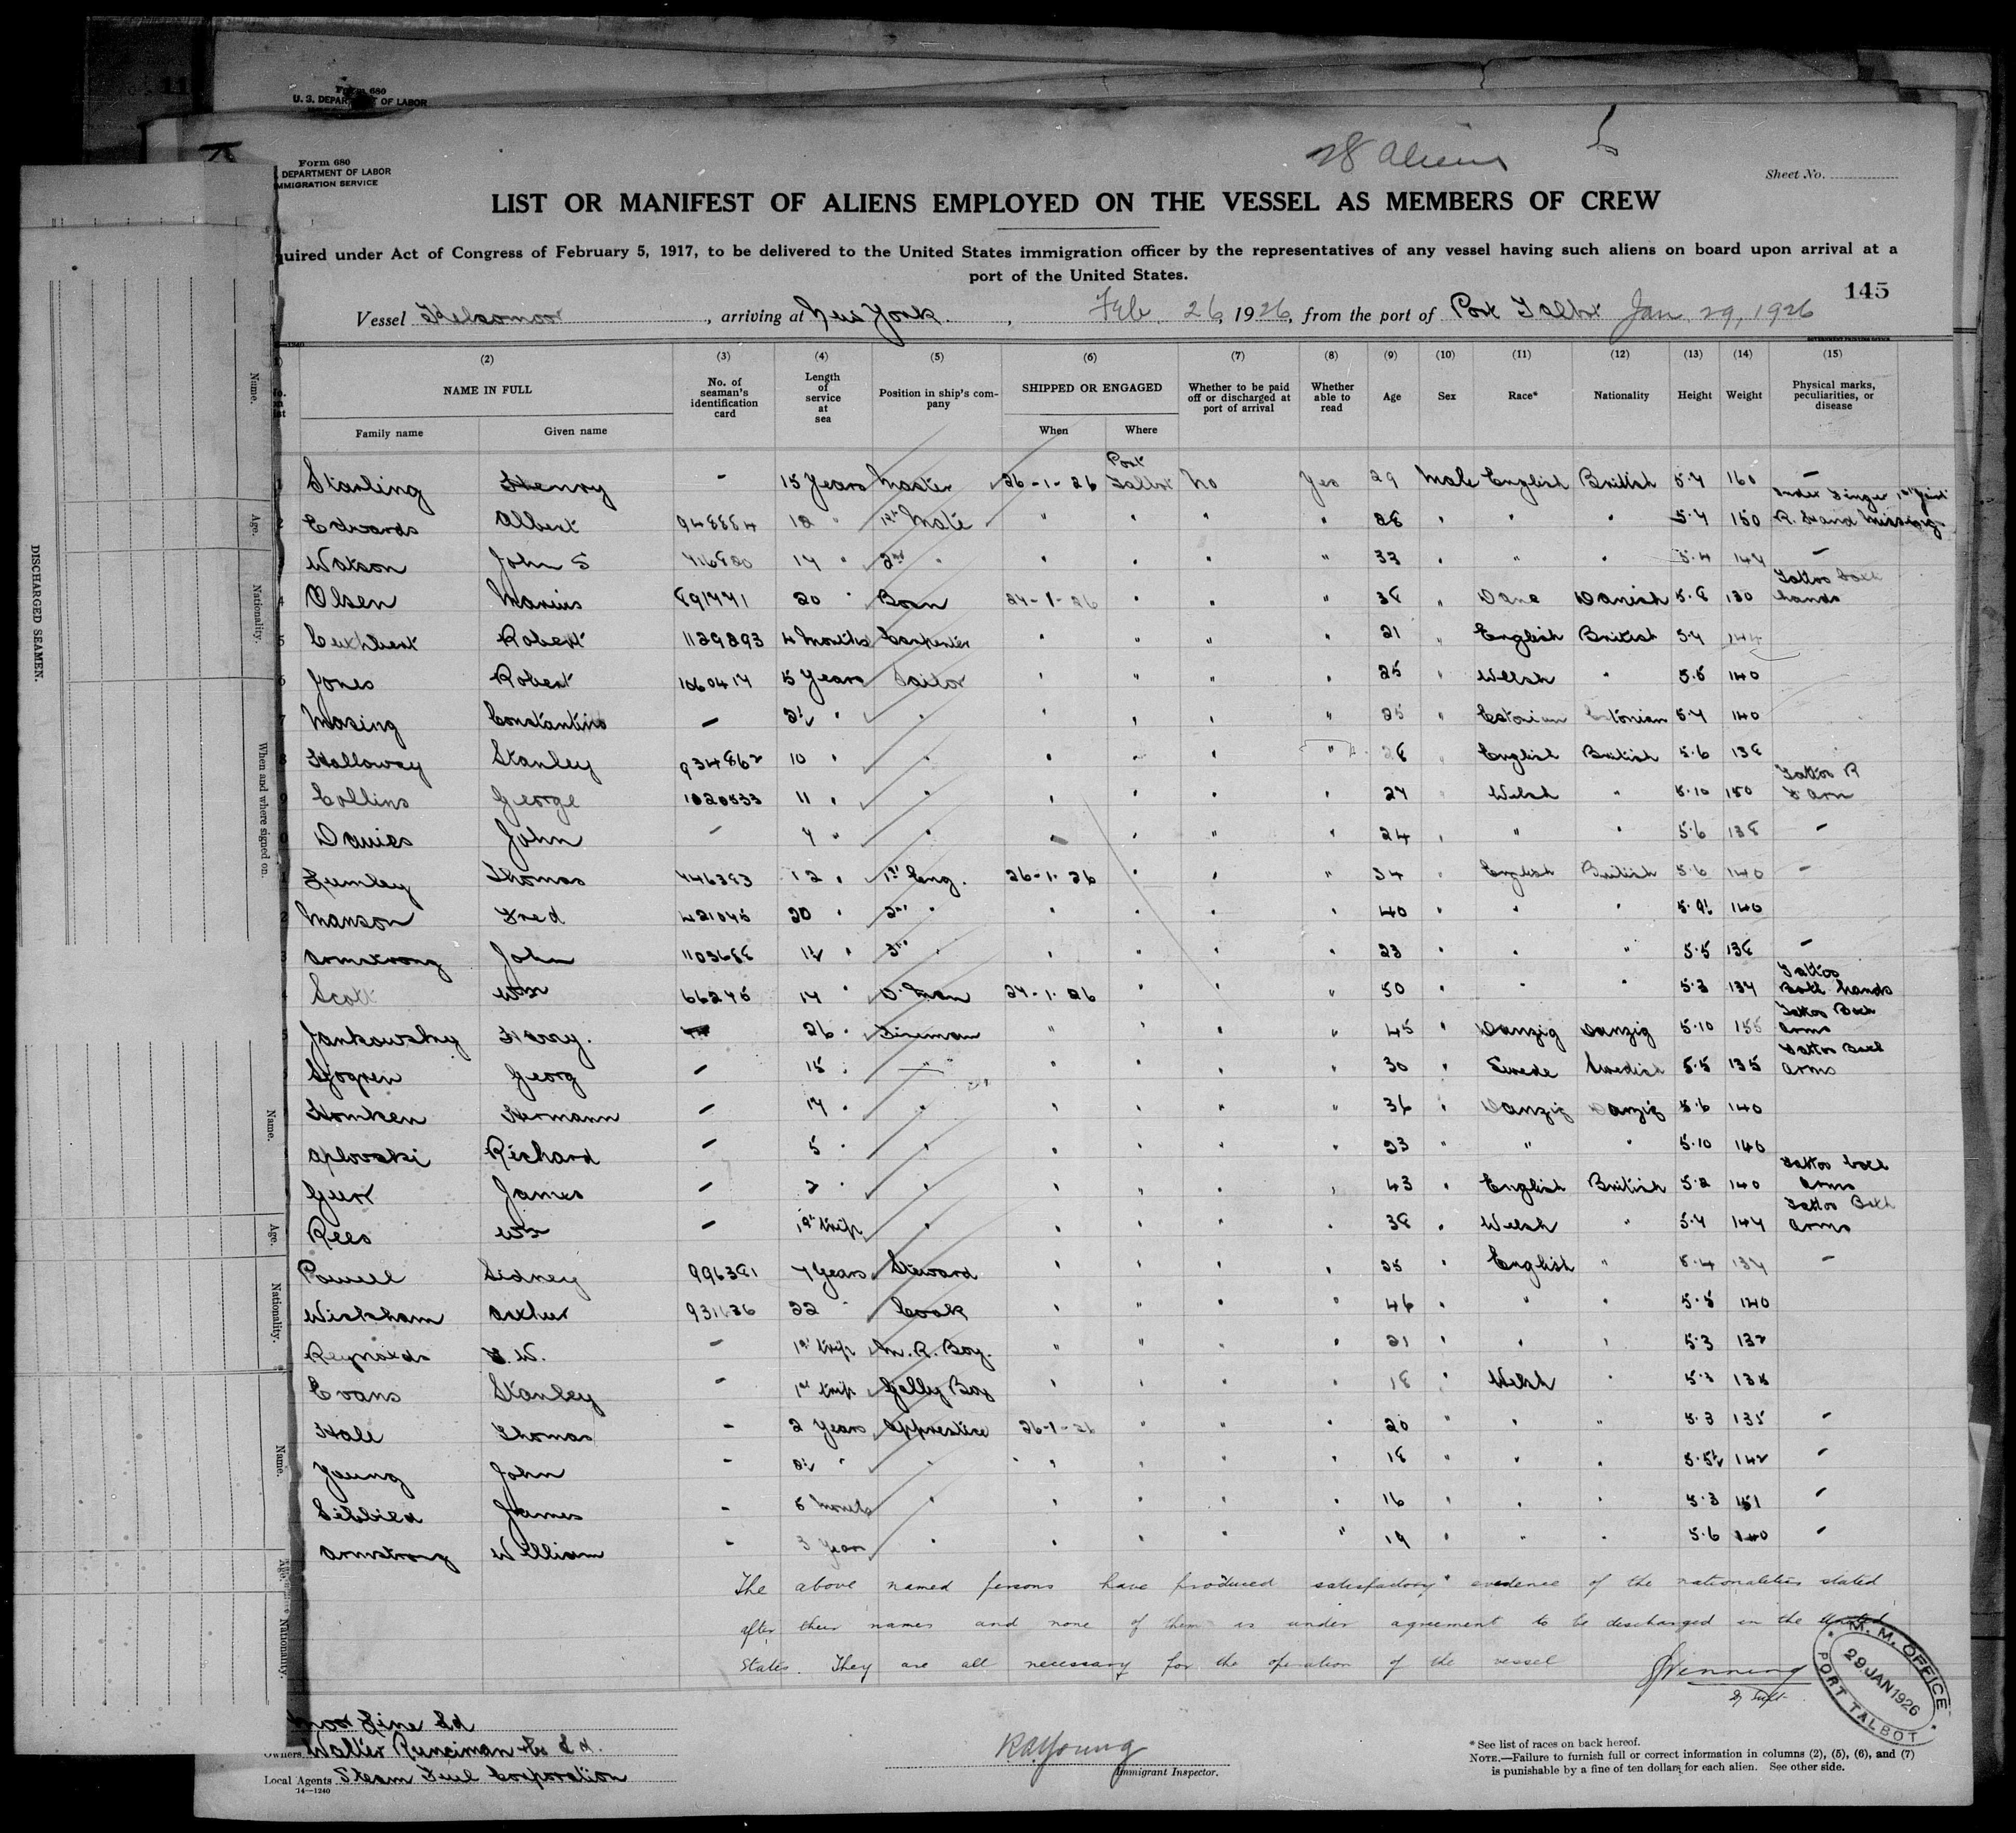 Form 680
U. S. DEPARTMENT OF LABOR
Form 680
DEPARTMENT OF LABOR
IMMIGRATION SERVICE
28 Aliens
Sheet No.
LIST OR MANIFEST OF ALIENS EMPLOYED ON THE VESSEL AS MEMBERS OF CREW
quired under Act of Congress of February 5, 1917, to be delivered to the United States immigration officer by the representatives of any vessel having such aliens on board upon arrival at a
port of the United States.
145
Vessel Kelsomoor, arriving at New York, Feb. 26, 1926, from the port of Port Talbot Jan 29, 1926
(2) (3) (4) (5) (6) (7) (8) (9) (10) (11) (12) (13) (14) (15)
NAME IN FULL No. of seaman's identification card Length of service at sea Position in ship's company SHIPPED OR ENGAGED Whether to be paid off or discharged at port of arrival Whether able to read Age Sex Race* Nationality Height Weight Physical marks, peculiarities, or disease
Family name Given name When Where
Starling Henry - 15 Years Master 26-1-26 Port Talbot No Yes 29 Male English British 5.7 160 -
Edwards Albert 948884 12 " 1st Mate " " " " 28 " " " 5.7 150 R. Hand missing
Watson John S 14 " 2nd " " " " " 33 " " " 5.4 147 -
Olsen Marius 891771 20 " Bosn 27-1-26 " " " 38 " Dane Danish 5.8 130 Tattoo both hands
Cuthbert Robert 1129893 4 Months Carpenter " " " " 21 " English British 5.7 144
Jones Robert 1060417 5 Years Sailor " " " " 25 " Welsh " 5.5 140
Mosing Constantine - 2½ " " " " " " 25 " Estonian Estonian 5.7 140
Holloway Stanley 934862 10 " " " " " " 28 " English British 5.6 138
Collins George 1020533 11 " " " " " " 27 " Welsh " 5.10 150 Tattoo R F arm
Davies John - 7 " " " " " " 24 " " " 5.6 138 -
Lumley Thomas 746393 12 " 1st Eng. 26-1-26 " " " 34 " English British 5.6 140 -
Manson Fred 421045 20 " 2nd " " " " " 40 " " " 5.9½ 140
Armstrong John 1103688 1½ " 3rd " " " " " 23 " " " 5.5 138 -
Scott Wm 66245 14 " D. Man 27-1-26 " " " 50 " " " 5.3 137 Tattoo Both hands
Jankowsky Harry. 26 " Fireman " " " " 45 " Danzig Danzig 5.10 155 Tattoo Both arms
Sjogren Georg - 15 " " " " " " 30 " Swede Swedish 5.5 135 Tattoo Both arms
Homken Hermann - 17 " " " " " " 36 " Danzig Danzig 5.6 140
Aplovski Richard - 5 " " " " " " 23 " " " 5.10 140
Gurr James - 2 " " " " " " 43 " English British 5.2 140 Tattoo both arms
Rees Wm - 1st trip " " " " " 38 " Welsh " 5.7 147 Tattoo Both arms
Powell Sidney 996381 7 Years Steward " " " " 25 " English " 5.4 137 -
Wickham Arthur 931636 22 " Cook " " " " 46 " " " 5.5 140
Reynolds F. W. - 1st trip M. R. Boy. " " " " 21 " " " 5.3 132
Evans Stanley - 1st trip Gally Boy " " " " 18 " Welsh " 5.3 138
Hale Thomas - 2 Years Apprentice 26-1-26 " " " 20 " " " 5.3 135 -
Young John - 2½ " " " " " " 18 " " " 5.5½ 142 -
James - 5 Months " " " " " 16 " " " 5.3 151 -
Armstrong William - 3 Years " " " " " 19 " " " 5.6 140 -
The above named persons have produced satisfactory evidence of the nationalities stated
after their names and none of them is under agreement to be discharged in the United
States. They are all necessary for the operation of the vessel
M. M. OFFICE
29 JAN 1926
PORT TALBOT
Moor Line Ld
Owners Walter Runciman & Co Ld.
Local Agents Steam Fuel Corporation
14—1240
R A Young
Immigrant Inspector.
* See list of races on back hereof.
NOTE.—Failure to furnish full or correct information in columns (2), (5), (6), and (7)
is punishable by a fine of ten dollars for each alien. See other side.
DISCHARGED SEAMEN.
Name.
Age.
Nationality.
When and where signed on.
Name.
Age.
Nationality.
Name.
Age.
Nationality.